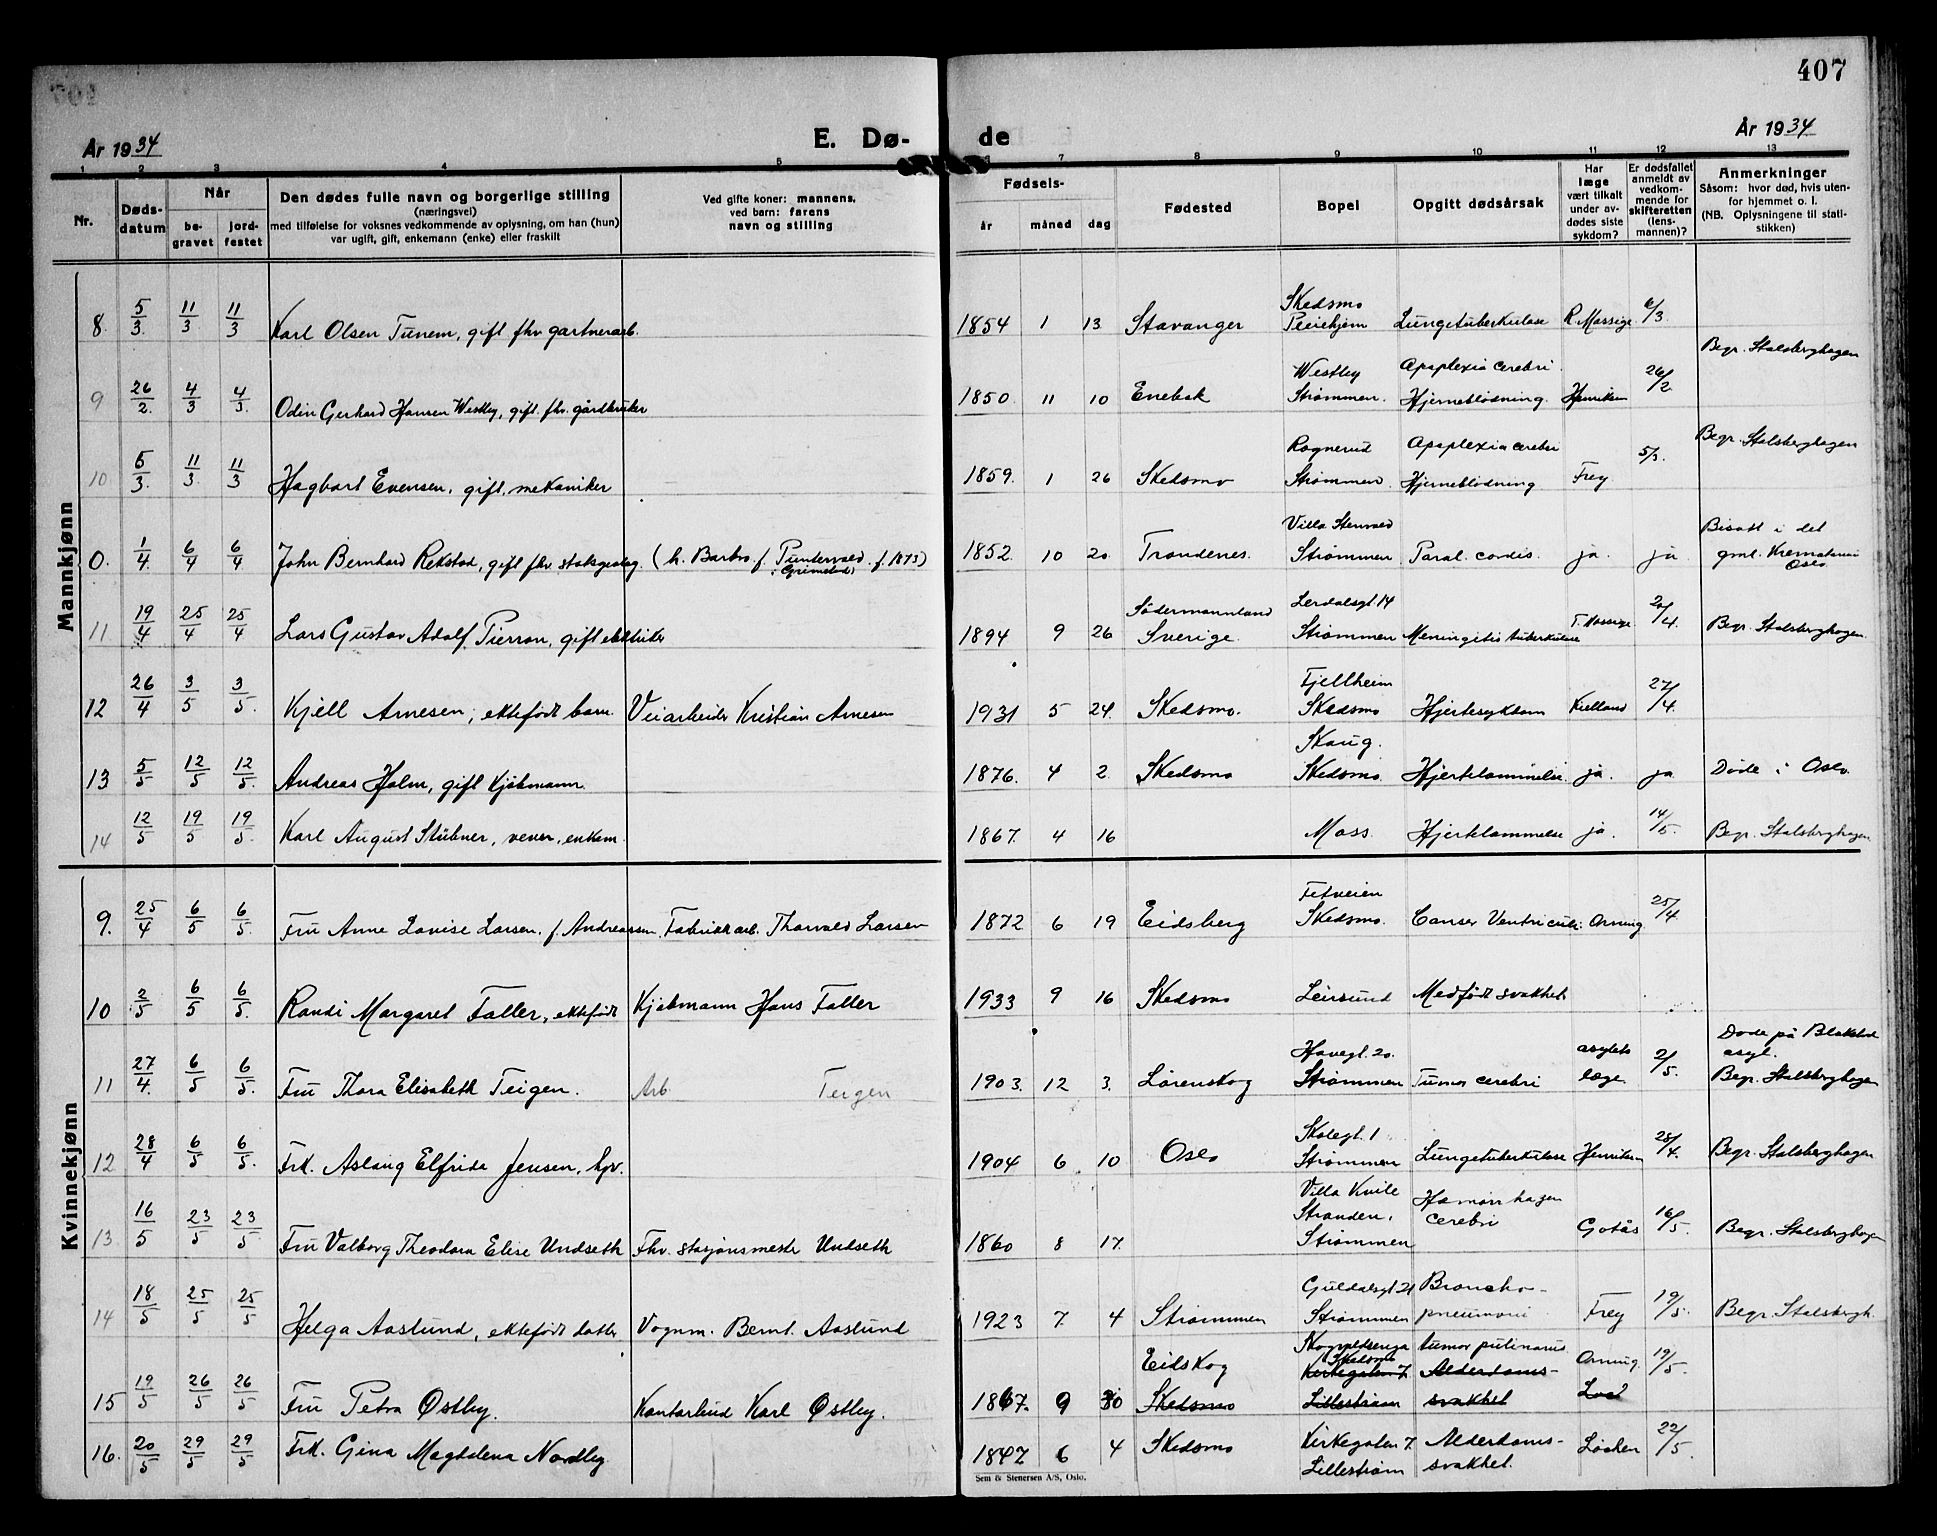 407
År 1934
E. Dø-
de
År 1934
1 2 3 4 5 6 7 8 9 10 11 12 13
Nr.
Døds-
datum
Når
be-
gravet
jord-
festet
Den dødes fulle navn og borgerlige stilling
(næringsvei)
med tilføielse for voksnes vedkommende av oplysning, om han (hun)
var ugift, gift, enkemann (enke) eller fraskilt
Ved gifte koner: mannens,
ved barn: farens
navn og stilling
Fødsels-
år måned dag
Fødested
Bopel
Opgitt dødsårsak
Har
læge
vært tilkalt
under av-
dødes siste
sykdom?
Er dødsfallet
anmeldt av
vedkom-
mende for
skifteretten
(lens-
mannen)?
Anmerkninger
Såsom: hvor død, hvis uten-
for hjemmet o. l.
(NB. Oplysningene til stati-
stikken)
Mannkjønn
8. 5/3. 11/3 11/3 Karl Olsen Tunem, gift fhv gartnerarb. 1854 1 13 Stavanger Skedsmo Pleiehjem Lungetuberkulose R. Massige 6/3. Begr. Stalsberghagen
9 26/2. 4/3 4/3. Odin Gerhard Hansen Westby, gift. fhv. gårdbruker 1850 11 10 Enebak Westby Strømmen. Apoplexia cerebri Hjerneblødning. Henriksen 26/2 Begr. Stalsberghagen
10 5/3. 11/3. 11/3 Hagbart Evensen, gift, mekaniker 1859. 1 26 Skedsmo Rognerud Strømmen. Apoplexia cerebri Hjerneblødning Frey 5/3.
0. 1/4. 6/4 6/4 John Bernhard Rekstad, gift fhv statsgeolog. (h. Barbro f. Puntervold. f. 1873) (Grimstad) 1852. 10 20. Trondenes. Villa Stenvold Strømmen Paral. cordis. ja. ja Bisatt i det gml. Krematorium Oslo
11 19/4 25/4 25/4 Lars Gustav Adolf Pierron, gift elektriker 1894 9 26 Södermannland Sverige. Lerdalsgt. 14 Strømmen Meningitis tuberkulose T. Massige 20/4. Begr. Stalsberghagen.
12 26/4 3/5 3/5. Kjell Arnesen, ektefødt barn. Veiarbeider Kristian Arnesen 1931 5 24. Skedsmo. Fjellheim Skedsmo Hjertesykdom Kielland 27/4.
13 5/5 12/5 12/5. Andreas Holm, gift Kjøbmann. 1876. 4 2. Skedsmo Skaug. Skedsmo. Hjertelammelse. ja. ja Døde i Oslo.
14 12/5 19/5 19/5. Karl August Stübner, vever, enkem. 1867. 4 16 Moss. Hjertelammelse ja. 14/5. Begr. Stalsberghagen
Kvinnekjønn
9. 25/4 6/5 6/5. Fru Anne Lovise Larsen. f. Andreassen. Fabrikkarb. Thorvald Larsen 1872 6 19 Eidsberg Fetveien Skedsmo. Canser Ventriculi. Orning. 25/4
10 2/5 6/5 6/5. Randi Margaret Faller, ektefødt Kjøbmann Hans Faller 1933 9 16 Skedsmo Leirsund Medfødt svakhet
11 27/4 6/5 6/5. Fru Thora Elisabeth Teigen. Arb Teigen 1903. 12 3. Lørenskog Havegt. 20. Strømmen Tumor cerebri asylets læge 2/5. Døde på Blakstad asyl. Begr. Stalsberghagen
12 28/4 6/5 6/5. Frk. Aslaug Elfrida Jensen, hjv. 1904 6 10 Oslo Skolegt. 1 Strømmen Lungetuberkulose Henriksen 28/4. Begr. Stalsberghagen
13 16/5 23/5 23/5. Fru Valborg Theodora Elise Undseth Fhv. stasjonsmester Undseth 1860 8 17. Villa Kvile Stranden, Strømmen Hæmorrhagia cerebri Gotås 16/5. Begr. Stalsberghagen
14 18/5 25/5 25/5. Helga Aaslund, ektefødt datter Vognm. Bernt. Aaslund 1923 7 4 Strømmen Guldalsgt 21 Strømmen Broncho-pneumoni Frey 19/5. Begr. Stalsbergh.
15 19/5 26/5 26/5 Fru Petra Østby. Kontorbud Karl Østby. 1867. 9 30 Eidskog Skedsmo Skedsmo Kirkegaten 7. Lillestrøm tumor Alderdoms-svakhet Orning. 19/5.
16. 20/5 29/5 29/5 Frk. Gina Magdalena Nordby 1847 6 4 Skedsmo Kirkegaten 7. Lillestrøm Alderdoms-svakhet. Løchen 22/5.
Sem & Stenersen A/S, Oslo.